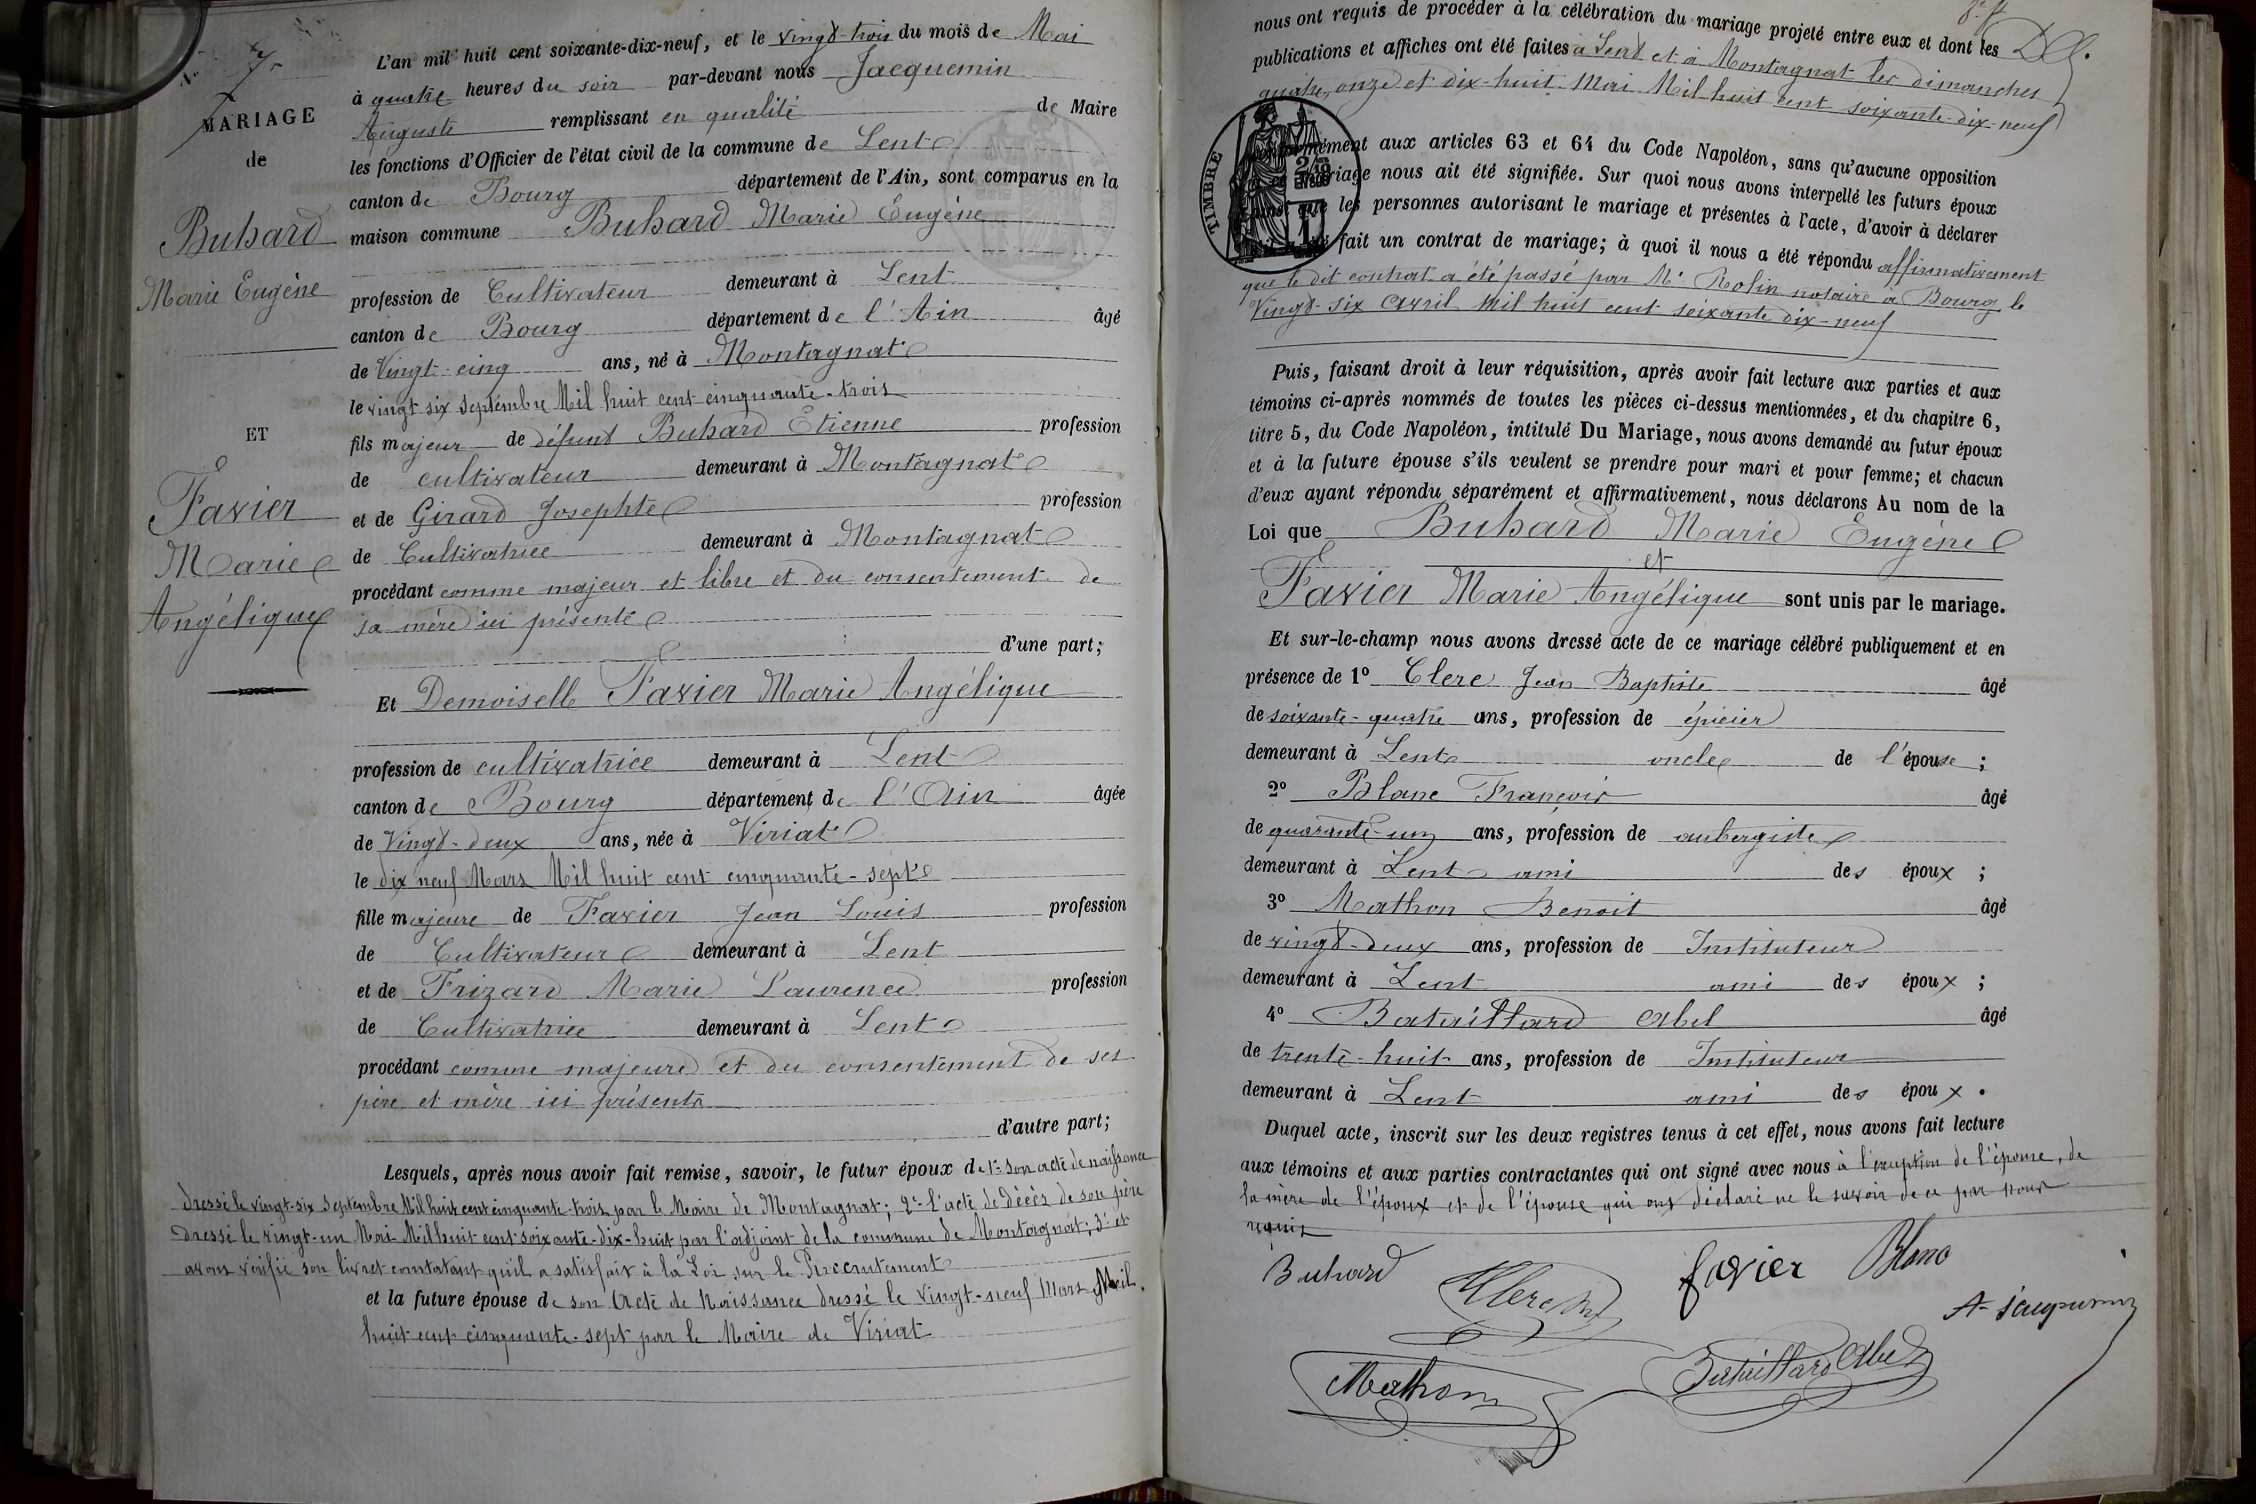 MARIAGE
de
Buhard
Marie Eugène
ET
Favier
Marie
Angélique
L'an mil huit cent soixante-dix-neuf, et le vingt-trois du mois de Mai
à quatre heures du soir par-devant nous Jacquemin
Auguste remplissant en qualité de Maire
les fonctions d'Officier de l'état civil de la commune de Lent
canton de Bourg département de l'Ain, sont comparus en la
maison commune Buhard Marie Eugène
profession de Cultivateur demeurant à Lent
canton de Bourg département de l'Ain âgé
de Vingt-cinq ans, né à Montagnat
le vingt six septembre Mil huit cent cinquante-trois
fils majeur de défunt Buhard Etienne profession
de cultivateur demeurant à Montagnat
et de Girard Josephte profession
de Cultivatrice demeurant à Montagnat
procédant comme majeur et libre et du consentement de
sa mère ici présente
d'une part;
Et Demoiselle Favier Marie Angélique
profession de cultivatrice demeurant à Lent
canton de Bourg département de l'Ain âgée
de Vingt-deux ans, née à Viriat
le dix neuf Mars Mil huit cent cinquante-sept
fille majeure de Favier Jean Louis profession
de Cultivateur demeurant à Lent
et de Frizard Marie Laurence profession
de Cultivatrice demeurant à Lent
procédant comme majeure et du consentement de ses
père et mère ici présents
d'autre part;
Lesquels, après nous avoir fait remise, savoir, le futur époux de 1° son acte de naissance
dressé le vingt-six Septembre Mil huit cent cinquante-trois par le Maire de Montagnat; 2° l'acte de décès de son père
dressé le vingt-un Mai Mil huit cent soixante-dix-huit par l'adjoint de la commune de Montagnat; 3° et
avons vérifié son livret constatant qu'il a satisfait à la Loi sur le Recrutement
et la future épouse de son Acte de Naissance dressé le vingt-neuf Mars Mil
huit cent cinquante-sept par le Maire de Viriat
nous ont requis de procéder à la célébration du mariage projeté entre eux et dont les
publications et affiches ont été faites à Lent et à Montagnat les dimanches
quatre, onze et dix-huit Mai Mil huit cent soixante-dix-neuf
TIMBRE
aux articles 63 et 64 du Code Napoléon, sans qu'aucune opposition
mariage nous ait été signifiée. Sur quoi nous avons interpellé les futurs époux
que les personnes autorisant le mariage et présentes à l'acte, d'avoir à déclarer
fait un contrat de mariage; à quoi il nous a été répondu affirmativement
que le dit contrat a été passé par Me Rolin notaire à Bourg le
Vingt-six Avril Mil huit cent soixante dix-neuf
Puis, faisant droit à leur réquisition, après avoir fait lecture aux parties et aux
témoins ci-après nommés de toutes les pièces ci-dessus mentionnées, et du chapitre 6,
titre 5, du Code Napoléon, intitulé Du Mariage, nous avons demandé au futur époux
et à la future épouse s'ils veulent se prendre pour mari et pour femme; et chacun
d'eux ayant répondu séparément et affirmativement, nous déclarons Au nom de la
Loi que Buhard Marie Eugène
et
Favier Marie Angélique sont unis par le mariage.
Et sur-le-champ nous avons dressé acte de ce mariage célébré publiquement et en
présence de 1° Clerc Jean Baptiste âgé
de soixante-quatre ans, profession de épicier
demeurant à Lent oncle de l'épouse;
2° Blanc François âgé
de quarante-un ans, profession de aubergiste
demeurant à Lent ami des époux;
3° Mathon Benoit âgé
de vingt-deux ans, profession de Instituteur
demeurant à Lent ami des époux;
4° Bataillard Abel âgé
de trente-huit ans, profession de Instituteur
demeurant à Lent ami des époux.
Duquel acte, inscrit sur les deux registres tenus à cet effet, nous avons fait lecture
aux témoins et aux parties contractantes qui ont signé avec nous à l'exception de l'épouse, de
la mère de l'époux et de l'épouse qui ont déclaré ne le savoir de ce par nous
requis
Buhard Clerc favier Blanc
A. Jacquemin
Mathon Bataillard Abel